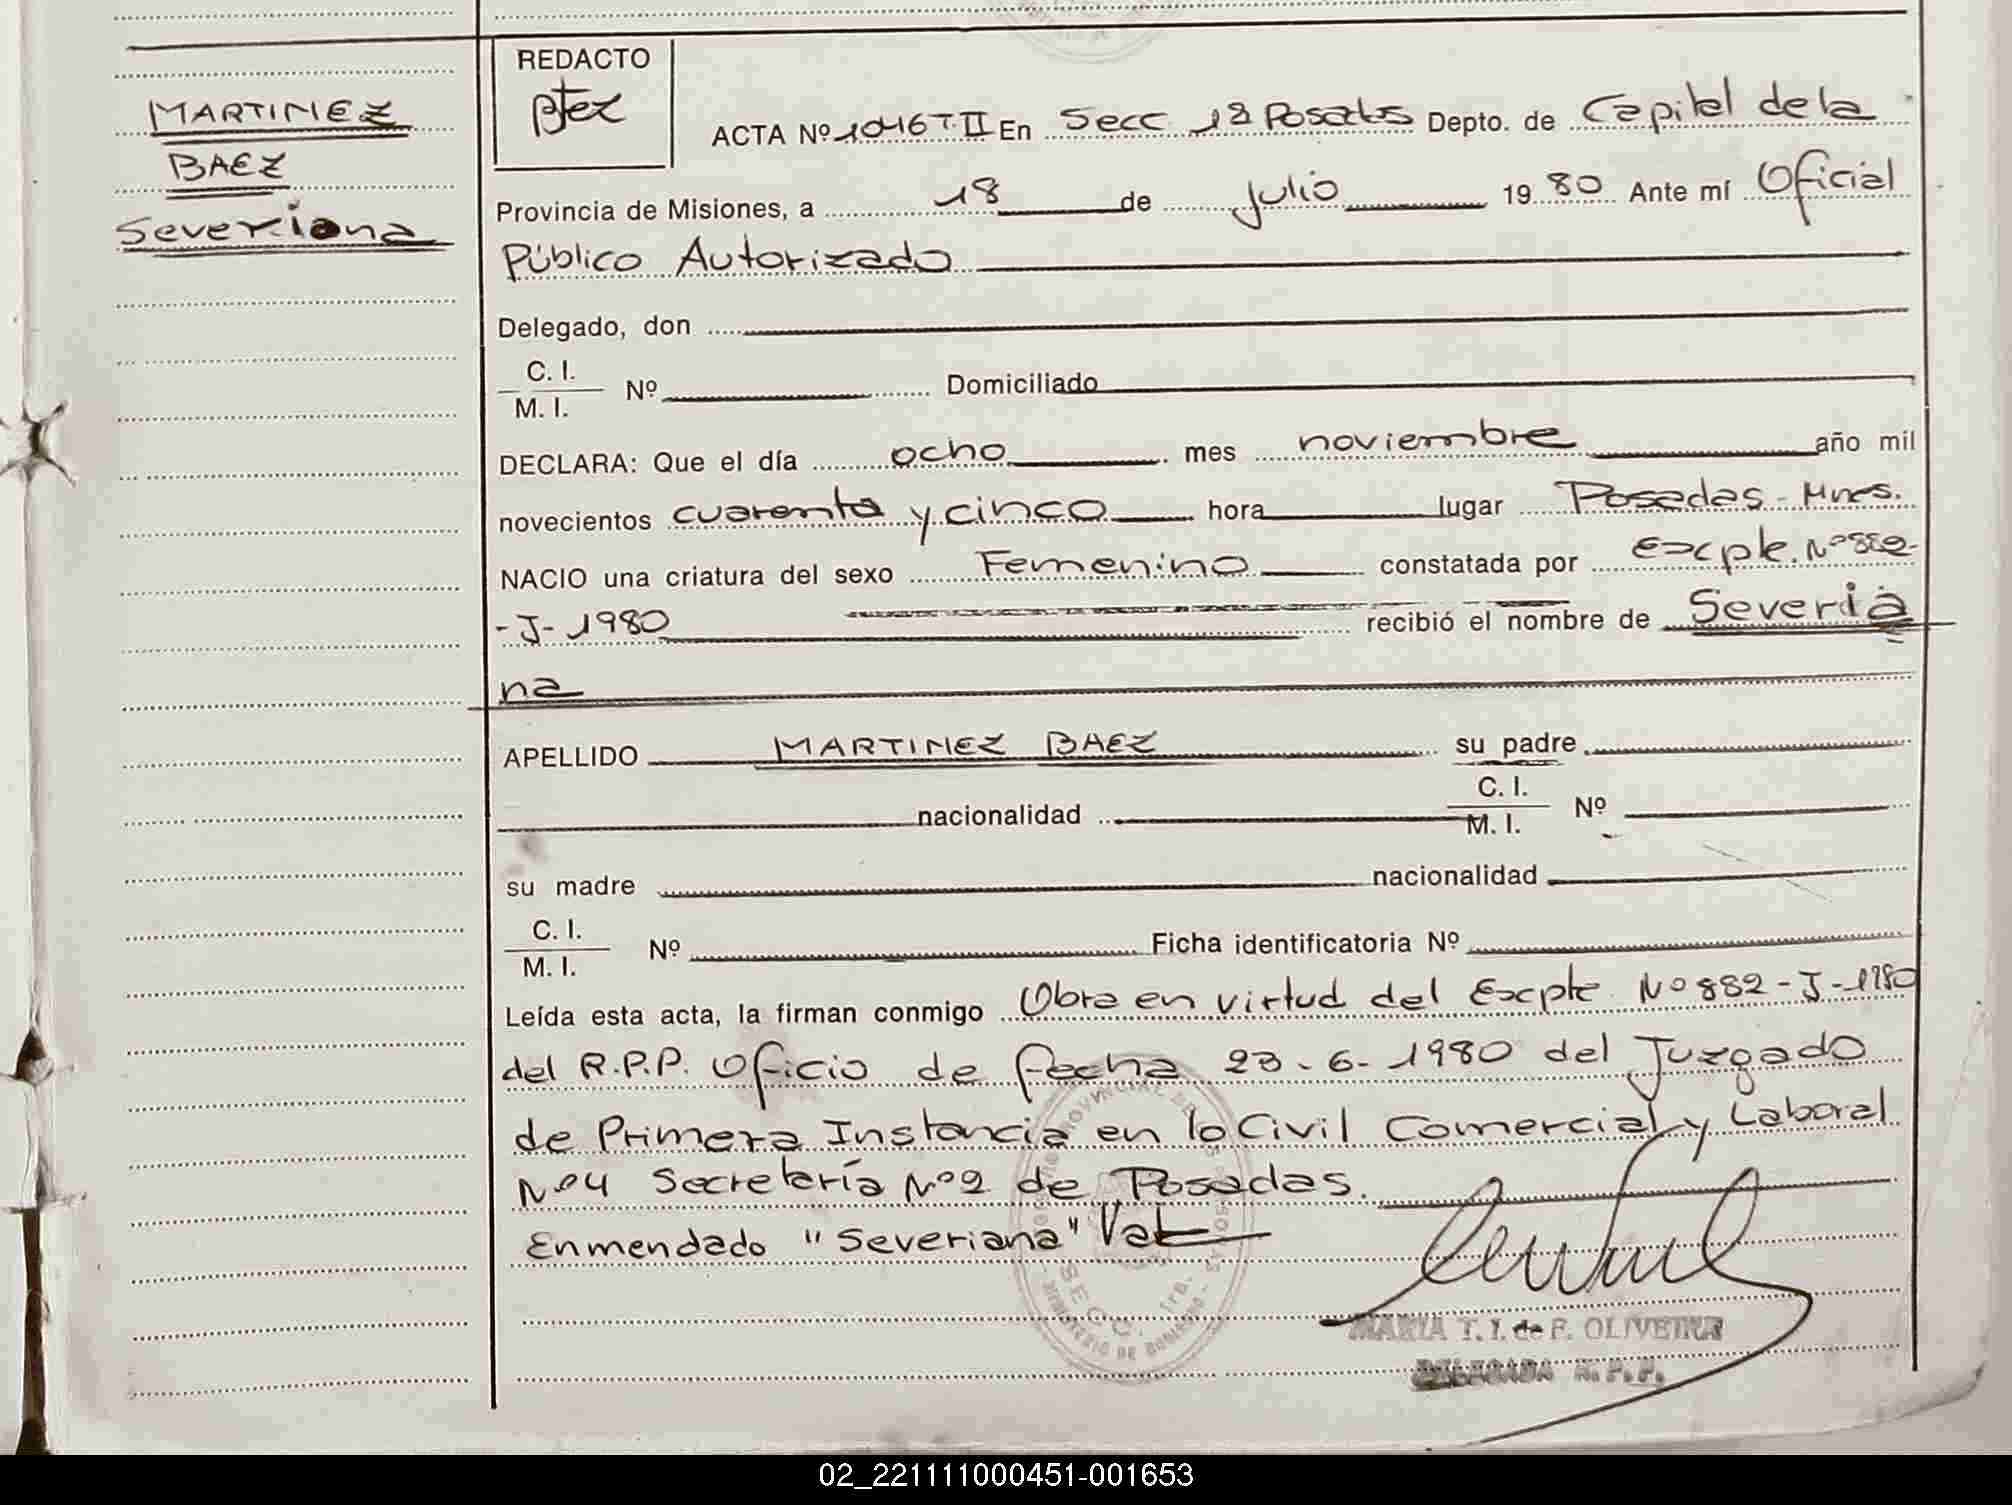 REDACTO
MARTINEZ
BAEZ
Severiana
ACTA Nº 1046 T.II En Secc 1ª Posadas Depto. de Capital de la
Provincia de Misiones, a 18 de julio 1980 Ante mí Oficial
Público Autorizado
Delegado, don
C. I.
M. I. Nº Domiciliado
DECLARA: Que el día ocho mes noviembre año mil
novecientos cuarenta y cinco hora lugar Posadas - Mnes.
NACIO una criatura del sexo Femenino constatada por Excpte. Nº 882-
-J-1980 recibió el nombre de Severia
na
APELLIDO MARTINEZ BAEZ su padre
nacionalidad C. I. M. I. Nº
su madre nacionalidad
C. I.
M. I. Nº Ficha identificatoria Nº
Leída esta acta, la firman conmigo Obra en virtud del Excpte Nº 882-J-1980
del R.P.P. Oficio de fecha 23-6-1980 del Juzgado
de Primera Instancia en lo Civil Comercial y Laboral
Nº4 Secretaría Nº2 de Posadas.
Enmendado "Severiana" Vale
SECC. 1ra.
MARIA T. I. de F. OLIVEIRA
DELEGADA R. P. P.
02_221111000451-001653